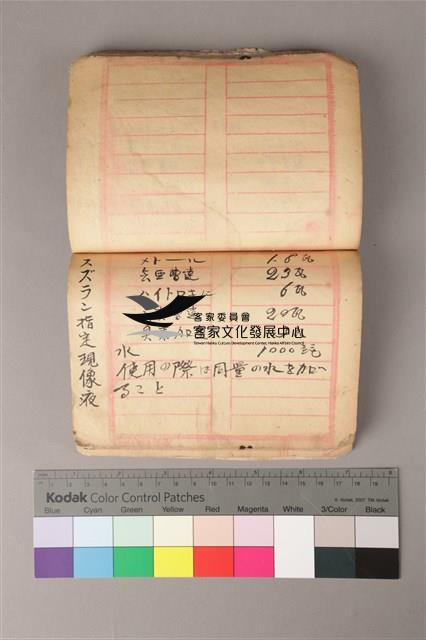 スズラン指定現像液
メトール 1.8瓦
23瓦
ハイドロキ 6瓦
水 1000
使用の際は同量の水を加へ
ること
客家委員會
客家文化發展中心
Taiwan Hakka Culture Development Center, Hakka Affairs Council
Kodak Color Control Patches
Blue Cyan Green Yellow Red Magenta White 3/Color Black